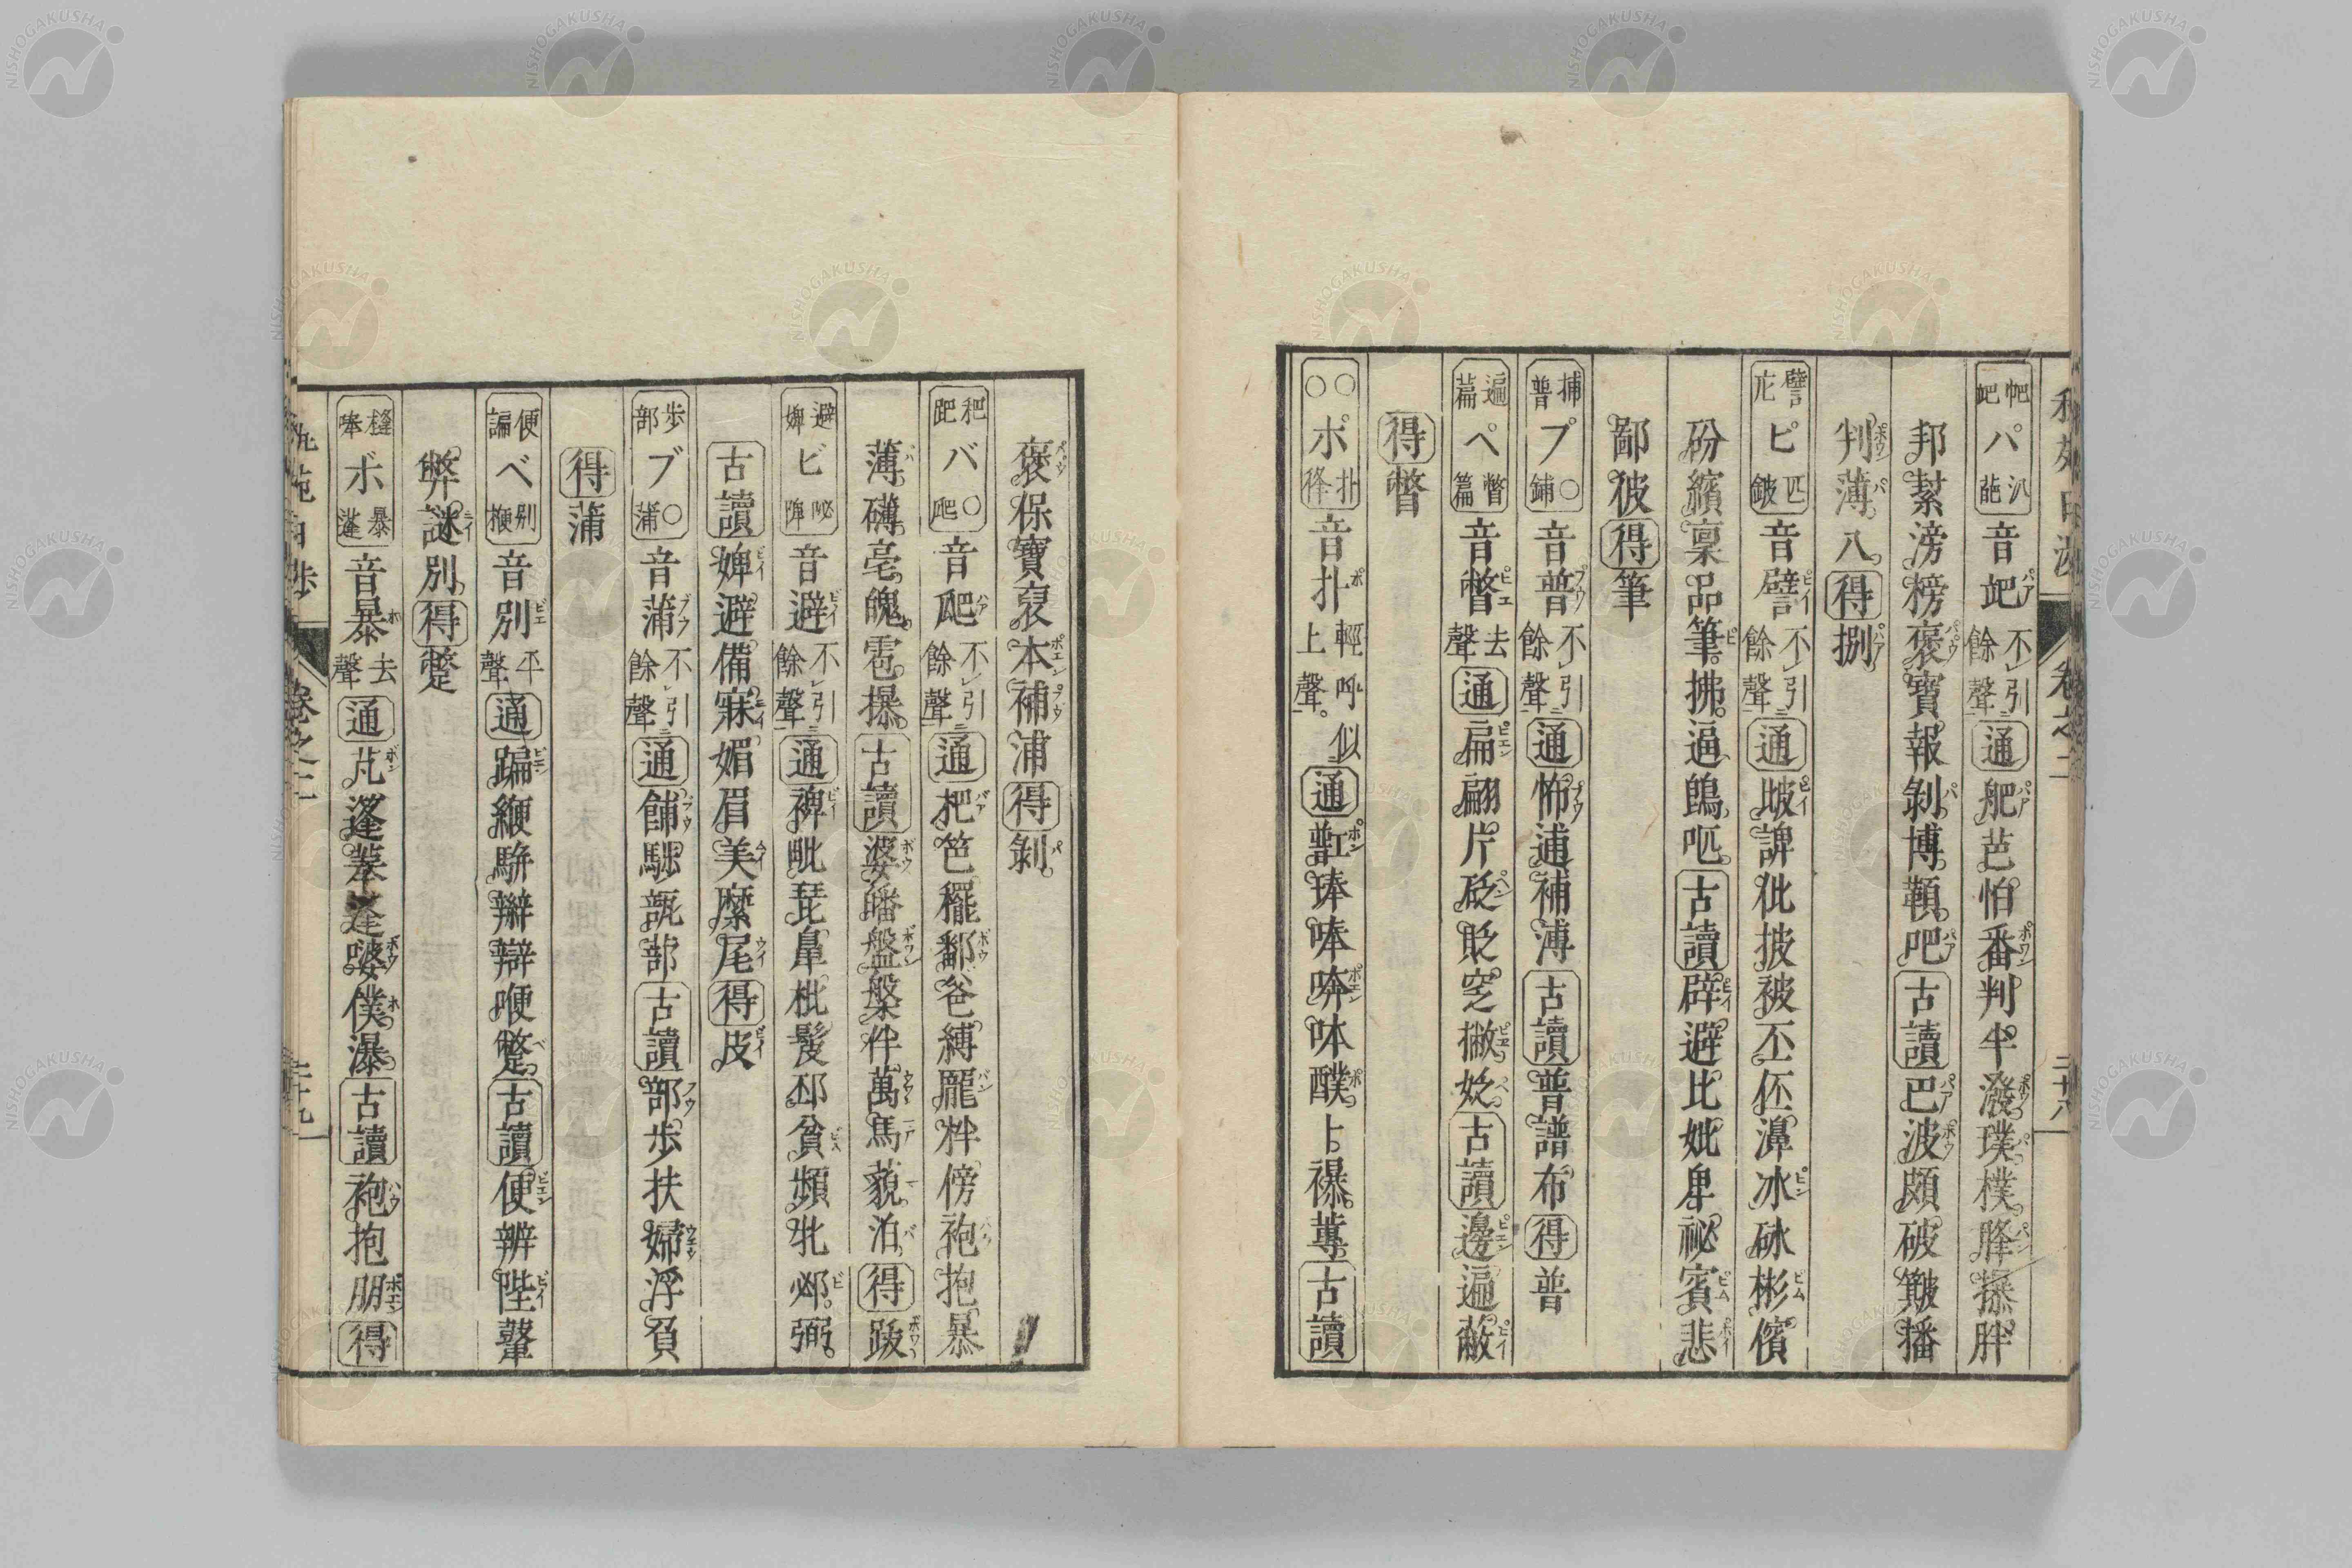 帊 パ 汃 䶕 葩 音 䶕 パア 不引餘聲 通 舥 芭 怕 番 判 半 潑 璞 樸 胮 㩧 胖
邦 幫 滂 榜 褒 寶 報 剝 博 顐 吧 古讀 巴 波 頗 破 簸 播
判 薄 八 得 捌
譬 ピ 匹 鈹 音 譬 ピイ 不引餘聲 通 帔 諀 仳 披 被 丕 伾 濞 冰 砅 彬 儐
砏 繽 稟 品 筆 拂 逼 鵖 㕸 古讀 辟 避 比 妣 卑 祕 賓 悲
鄙 彼 得 筆
捕 普 プ 〇 鋪 音 普 プウ 不引餘聲 通 怖 逋 補 溥 古讀 普 譜 布 得 普
遍 篇 ペ 瞥 篇 音 瞥 ピエ 去聲 通 扁 翩 片 砭 貶 窆 撇 古讀 邊 遍 蔽
得 瞥
〇〇 ポ 扑 音 扑 ポ 輕呼似上聲 通 琫 唪 噴 呠 醭 卜 襮 古讀
褒 保 寶 裒 本 補 浦 得 剝
杷 跁 バ 〇 爬 音 爬 バア 不引餘聲 通 杷 笆 䎱 鄱 爸 縛 龎 柈 傍 袍 抱 暴
薄 礴 亳 魄 雹 㩧 古讀 婆 皤 盤 槃 伴 萬 馬 藐 泊 得 跋
避 婢 ビ 邲 陴 音 避 ビイ 不引餘聲 通 裨 毗 琵 鼻 枇 髲 邳 貧 頻 牝 邲 弼
古讀 婢 避 備 寐 媚 眉 美 縻 尾 得 皮
步 部 ブ 〇 蒲 音 蒲 ブウ 不引餘聲 通 餔 瓿 蔀 古讀 部 步 扶 婦 浮 負
得 蒲
便 諞 ベ 別 楩 音 別 ビエ 平聲 通 蹁 緶 騈 辮 辯 㛹 蹩 古讀 便 辨 陛 鼙
弊 謎 別 得 蹩
ボ 暴 篷 音 暴 ホ 去聲 通 芃 蓬 菶 逢 婆 僕 瀑 古讀 袍 抱 朋 得
卷之二 二十八
卷之二 二十九